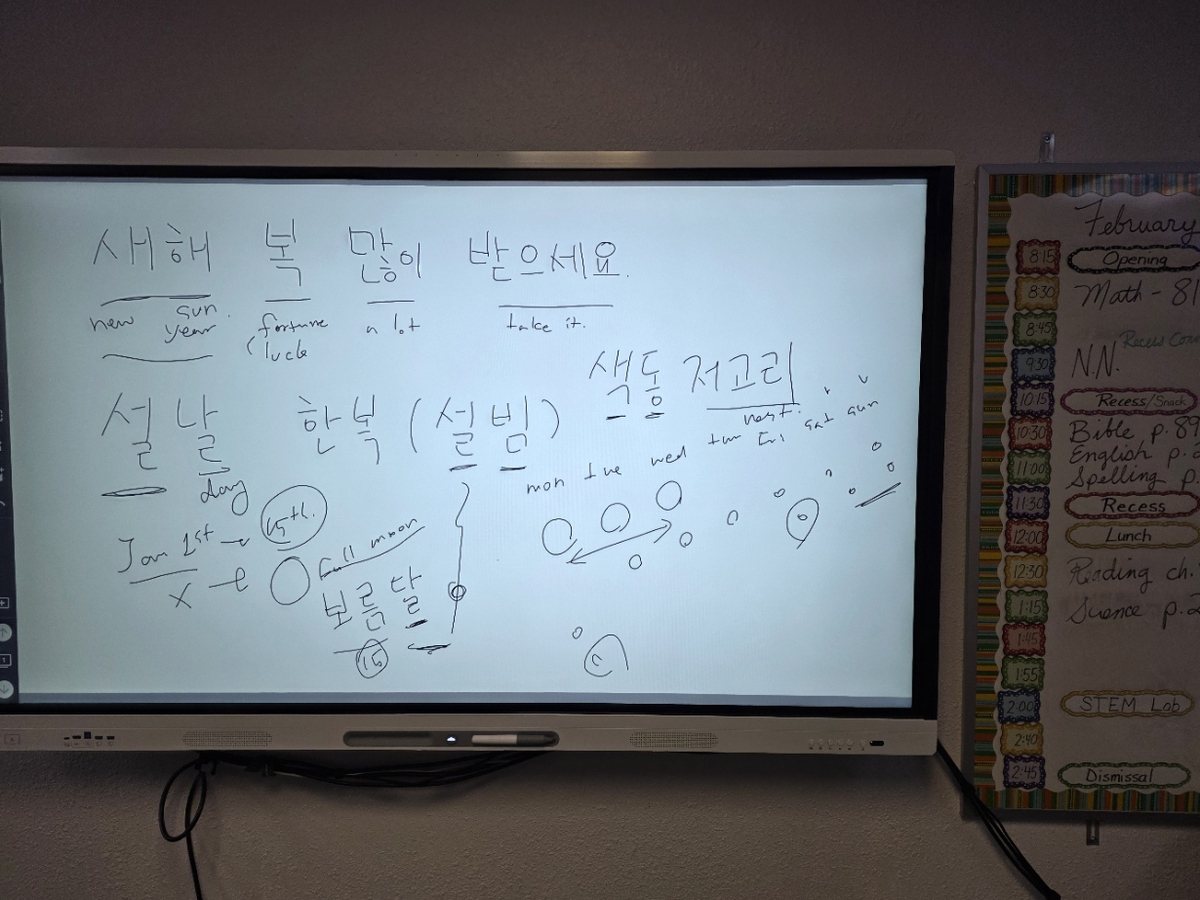 새해 복 많이 받으세요.
new sun year. fortune luck a lot take it.
색동 저고리
vest.
설날 한복 (설빔)
day
mon tue wed thu fri sat sun
Jan 1st → 15th.
x → full moon
보름달
15
February
8:15 Opening
8:30 Math - 81
8:45 Recess
9:30 N.N.
10:15 Recess/Snack
10:30 Bible p. 89
11:00 English p.
Spelling p.
11:30 Recess
12:00 Lunch
12:30 Reading ch.
1:15 Science p. 2
1:45
1:55
2:00 STEM Lab
2:40
2:45 Dismissal